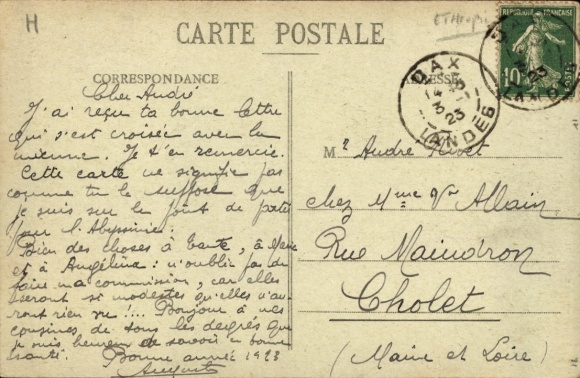 H
ETHIOPIE
CARTE POSTALE
CORRESPONDANCE
ADRESSE
REPUBLIQUE FRANÇAISE
10
POSTES
DAX
23
LANDES
Cher André
J'ai reçu ta bonne lettre
qui s'est croisée avec la
mienne. Je t'en remercie.
Cette carte ne signifie pas
comme tu le supposes que
je suis sur le point de partir
pour l'Abyssinie.
Bien des choses à tante, à Marie
et à Angélina: n'oublie pas de
faire ma commission, car elles
seront si modestes qu'elles n'au-
ront rien vu!... Bonjour à nos
cousines de tous les degrés que
je suis heureux de savoir en bonne
santé. Bonne année 1923
Auguste
Mr André
chez Mme Vve Allain
Rue Maindron
Cholet
(Maine et Loire)